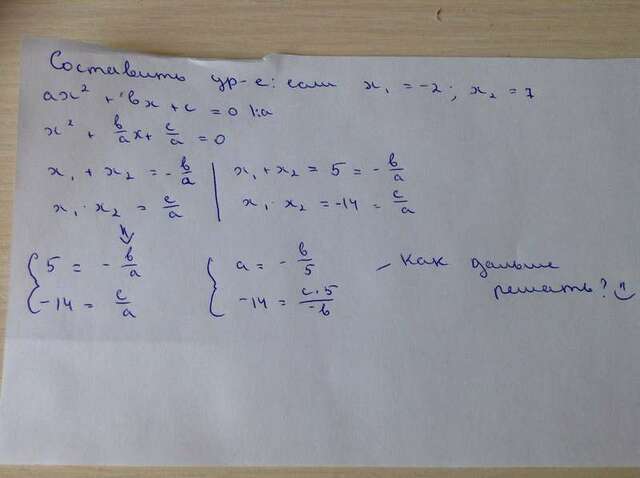 Составить ур-е: если x₁ = -2; x₂ = 7
ax² + bx + c = 0 |:a
x² + b/a x + c/a = 0
x₁ + x₂ = - b/a | x₁ + x₂ = 5 = - b/a
x₁ · x₂ = c/a | x₁ · x₂ = -14 = c/a
⇓
{ 5 = - b/a
{ -14 = c/a
{ a = - b/5
{ -14 = c·5/-b
- Как дальше
решать?